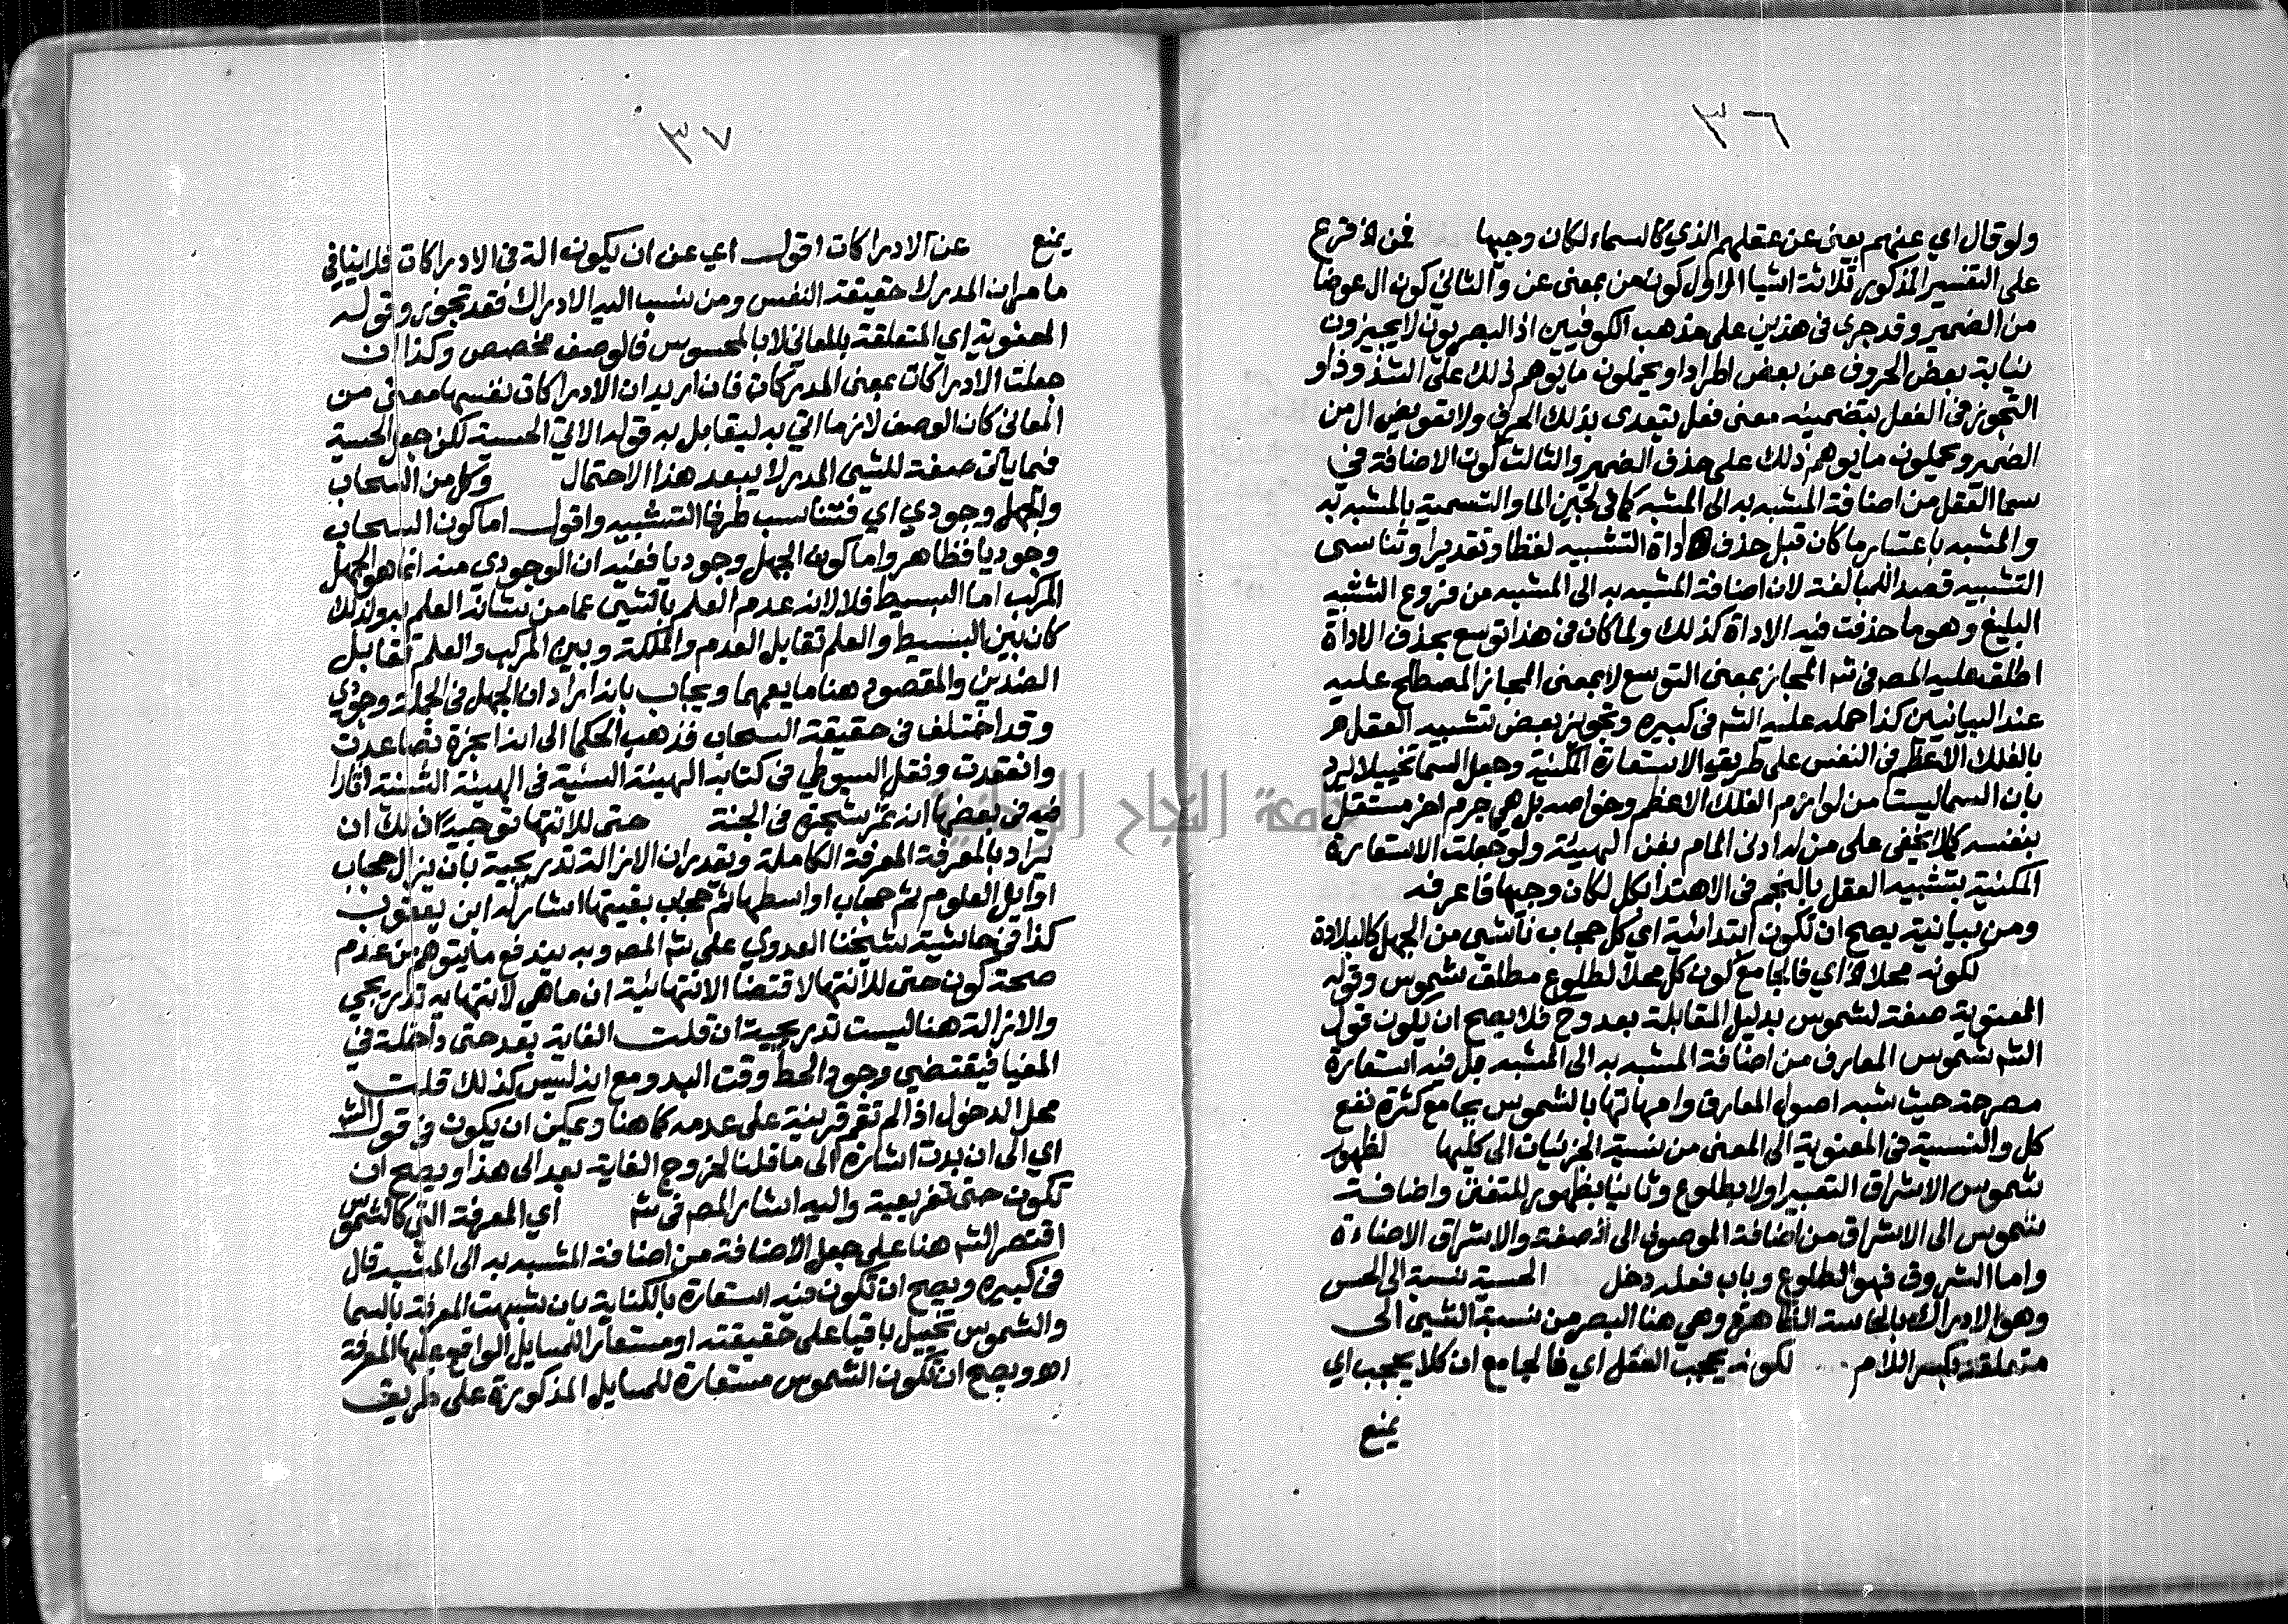 ٣٦
ولو قال اي عنهم يعني عن عقلهم الذي كالسماء لكان وجيها فمن اه فرع
على التفسير المذكور ثلاثة اشيا الاول كون من بمعنى عن والثاني كون ال عوضا
من الضمير وقد جرى في هذين على مذهب الكوفيين اذ البصريون لا يجيزون
نيابة بعض الحروف عن بعض اطرادا ويحملون ما يوهم ذلك على الشذوذ او
التجوز في الفعل بتضمينه معنى فعل يتعدى بذلك الحرف ولا تعويض ال من
الضمير ويحملون ما يوهم ذلك على حذف الضمير والثالث كون الاضافة في
سما العقل من اضافة المشبه به الى المشبه كما في لجين الما والتسمية بالمشبه به
والمشبه باعتبار ما كان قبل حذف اداة التشبيه لفظا وتقديرا وتناسى
التشبيه قصدا للمبالغة لان اضافة المشبه به الى المشبه من فروع التشبيه
البليغ وهو ما حذفت فيه الاداة كذلك ولما كان في هذا توسع بحذف الاداة
اطلق عليه المص في شه المجاز بمعنى التوسع لا بمعنى المجاز المصطلح عليه
عند البيانيين كذا حمله عليه الشه في كبيره وتجويز بعض تشبيه العقل
بالفلك الاعظم في النفس على طريق الاستعارة المكنية وجعل السما تخييلا يرد
بان السما ليست من لوازم الفلك الاعظم وخواصه بل هي جرم اخر مستقل
بنفسه كما لا يخفى على من له ادنى المام بفن الهيئة ولو جعلت الاستعارة
المكنية بتشبيه العقل بالنجم في الاهتدا بكل لكان وجيها فاعرفه
ومن بيانية يصح ان تكون ابتدائية اي كل حجاب ناشي من الجهل كالبلادة
لكونه محلا اه اي فالجامع كون كل محلا لطلوع مطلق شموس وقوله
المعنوية صفة لشموس بدليل المقابلة بعد وح فلا يصح ان يكون قول
الشه شموس المعارف من اضافة المشبه به الى المشبه بل فيه استعارة
مصرحة حيث شبه اصول المعارف وامهاتها بالشموس بجامع كثرة نفع
كل والنسبة في المعنوية الى المعنى من نسبة الجزئيات الى كليها لظهور
شموس الاشراق التعبير اولا بطلوع وثانيا بظهور للتفنن واضافة
شموس الى الاشراق من اضافة الموصوف الى الصفة والاشراق الاضاءة
واما الشروق فهو الطلوع وباب فعله دخل الحسية نسبة الى الحس
وهو الادراك بالحاسة الظاهرة وهي هنا البصر من نسبة الشي الى
متعلقه بكسر اللام لكونه يحجب العقل اي فالجامع ان كلا يحجب اي
يمنع
٣٧
يمنع عن الادراكات اقول اي عن ان يكون الة في الادراكات فلا ينافي
ما مر ان المدرك حقيقة النفس ومن نسب اليه الادراك فقد تجوز وقوله
المعنوية اي المتعلقة بالمعاني لا بالمحسوس فالوصف مخصص وكذا ان
جعلت الادراكات بمعنى المدركات فان اريد ان الادراكات نفسها معنى من
المعاني كان الوصف لازما اتي به ليقابل به قوله الاتي الحسية لكن جعل الحسية
فيما ياتي صفة للشي المدرك يبعد هذا الاحتمال وكل من السحاب
والجهل وجودي اي فتناسب طرفا التشبيه واقول اما كون السحاب
وجوديا فظاهر واما كون الجهل وجوديا ففيه ان الوجودي منه انما هو الجهل
المركب اما البسيط فلا لانه عدم العلم بالشي عما من شانه العلم به ولذلك
كان بين البسيط والعلم تقابل العدم والملكة وبين المركب والعلم تقابل
الضدين والمقصود هنا ما يعمهما ويجاب بانه اراد ان الجهل في الجملة وجودي
وقد اختلف في حقيقة السحاب فذهب الحكما الى انه ابخرة تصاعدت
وانعقدت ونقل السيوطي في كتابه الهيئة السنية في الهيئة السنية اثارا
فيه في بعضها انه ثمر شجرة في الجنة حتى للانتها توجيه ذلك ان
يراد بالمعرفة المعرفة الكاملة ويقدر ان الازالة تدريجية بان يزال حجاب
اوايل العلوم ثم حجاب اواسطها ثم حجاب بقيتها اشار له ابن يعقوب
كذا في حاشية شيخنا العدوي على شه المص وبه يندفع ما يتوهم من عدم
صحة كون حتى للانتها لاقتضا الانتهائية ان ما هي لانتهايه تدريجي
والازالة هنا ليست تدريجية ان قلت الغاية بعد حتى داخلة في
المغيا فيقتضي وجود الحط وقت البدو مع انه ليس كذلك قلت
محل الدخول اذا لم تقم قرينة على عدمه كما هنا ويمكن ان يكون في قول الشه
اي الى ان بدت اشارة الى ما قلنا لخروج الغاية بعد الى هذا ويصح ان
تكون حتى تفريعية واليه اشار المص في شه اي المعرفة التي كالشموس
اقتصر الشه هنا على جعل الاضافة من اضافة المشبه به الى المشبه قال
في كبيره ويصح ان تكون فيه استعارة بالكناية بان شبهت المعرفة بالسما
والشموس تخييل باقيا على حقيقته او مستعارا للمسايل الواقع عليها المعرفة
اه ويصح ان تكون الشموس مستعارة للمسايل المذكورة على طريق
جامعة النجاح الوطنية